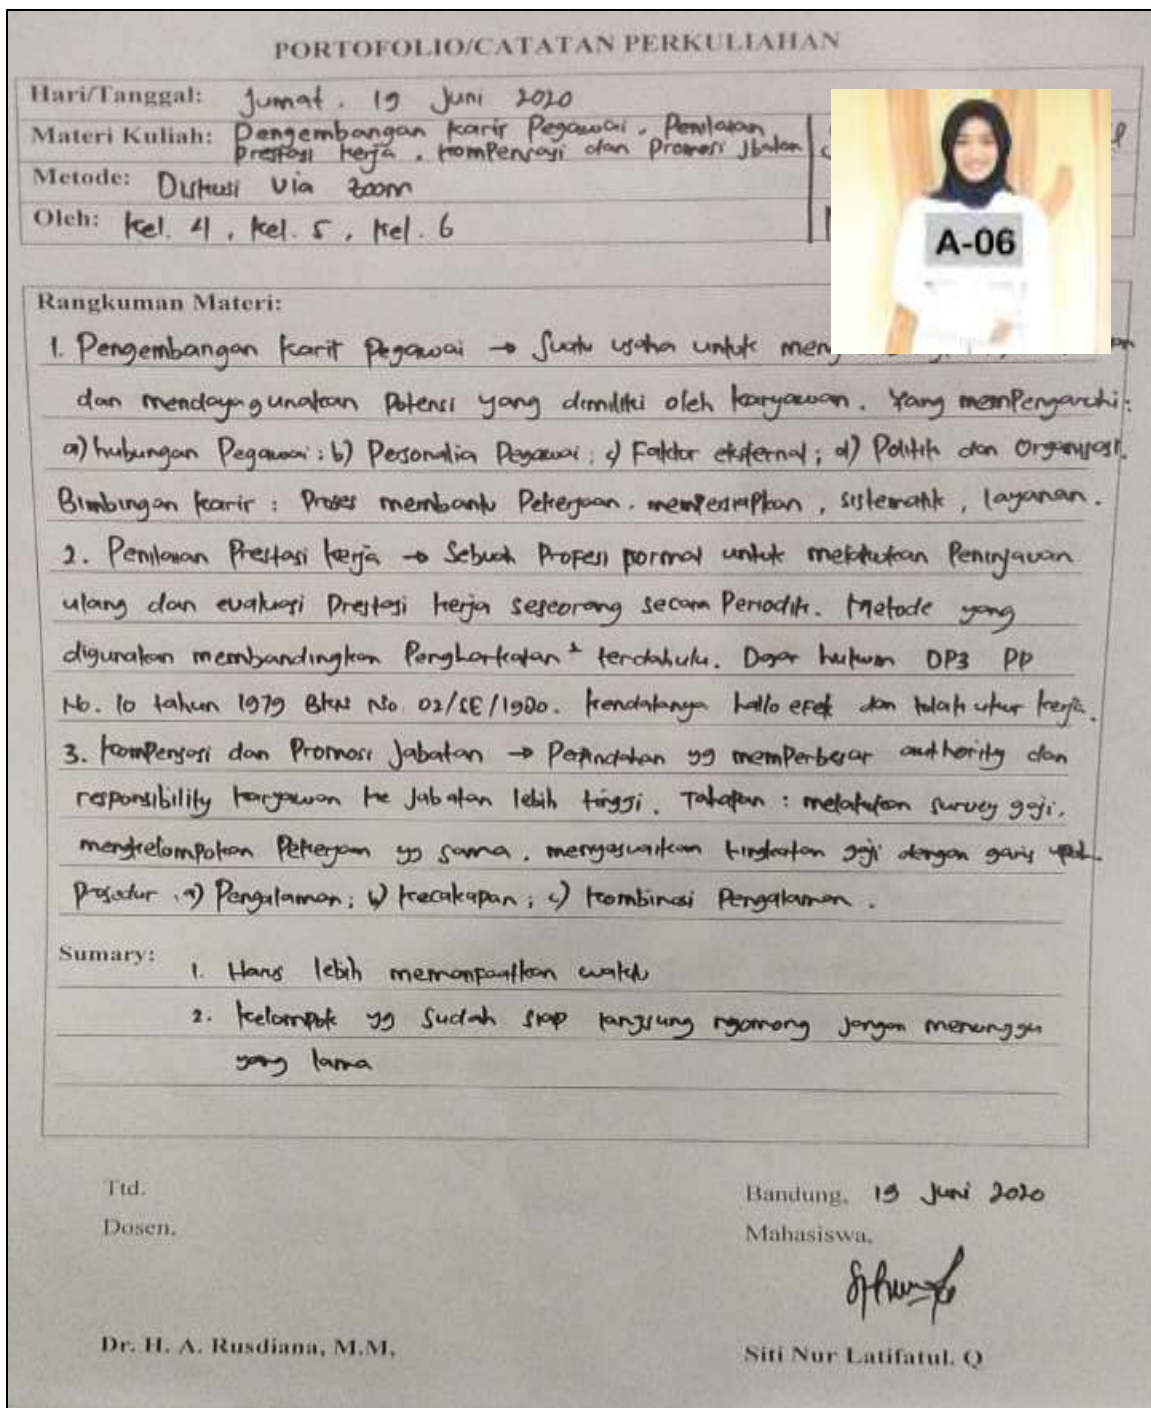 PORTOFOLIO/CATATAN PERKULIAHAN
Hari/Tanggal: Jumat, 19 Juni 2020
Materi Kuliah: Pengembangan karir Pegawai, Penilaian
Prestasi kerja, kompensasi dan Promosi Jbatan
Metode: Diskusi via zoom
Oleh: kel. 4, kel. 5, kel. 6
A-06
Rangkuman Materi:
1. Pengembangan karit Pegawai → Suatu usaha untuk
dan mendayagunakan Potensi yang dimiliki oleh karyawan. Yang mempengaruhi:
a) hubungan Pegawai; b) Personalia Pegawai; c) Faktor eksternal; d) Politik dan Organisasi.
Bimbingan karir: Proses membantu Pekerjaan, mempersiapkan, sistematik, layanan.
2. Penilaian Prestasi kerja → Sebuah Profesi pormal untuk melakukan Peninjauan
ulang dan evaluasi Prestasi kerja seseorang secara Periodik. Metode yang
digunakan membandingkan terdahulu. Dasar hukum DP3 PP
No. 10 tahun 1979 BKN No. 02/SE/1980. kendalanya hallo efek dan tolak ukur kerja.
3. kompensasi dan Promosi Jabatan → Perpindahan yg memperbesar authority dan
responsibility karyawan ke Jabatan lebih tinggi. Tahapan: melakukan survey gaji,
mengkelompokan Pekerjaan yg sama, menyesuaikan tingkatan gaji dengan garis upah.
Prosedur, a) Pengalaman; b) kecakapan; c) kombinasi Pengalaman.
Sumary:
1. Harus lebih memanpaatkan waktu
2. kelompok yg sudah siap langsung ngomong jangan menunggu
yang lama
Ttd.
Dosen,
Dr. H. A. Rusdiana, M.M,
Bandung, 19 Juni 2020
Mahasiswa,
Siti Nur Latifatul. Q